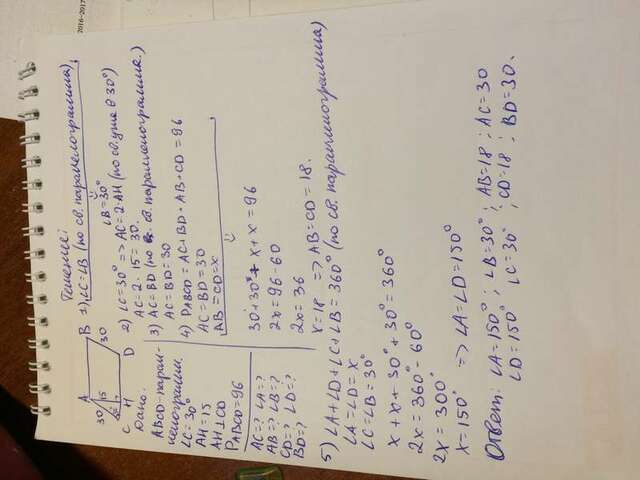 2016-2017
A B
30 15 30
C H D
Дано:
ABCD-парал-
лелограмм.
∠C=30°
AH=15
AH⊥CD
PABCD=96
AC=? ∠A=?
AB=? ∠B=?
CD=? ∠D=?
BD=?
Решение:
1) ∠C=∠B (по св. параллелограмма)
∠B=30°
2) ∠C=30° => AC=2·AH (по св. угла в 30°)
AC=2·15=30.
3) AC=BD (по св. параллелограмма.)
AC=BD=30
4) PABCD=AC+BD+AB+CD=96
AC=BD=30
AB=CD=x
30+30+x+x=96
2x=96-60
2x=36
x=18 => AB=CD=18.
5) ∠A+∠D+∠C+∠B=360° (по св. параллелограмма)
∠A=∠D=x
∠C=∠B=30°
x+x+30°+30°=360°
2x=360°-60°
2x=300°
x=150° => ∠A=∠D=150°
Ответ: ∠A=150°; ∠B=30°; AB=18; AC=30
∠D=150° ∠C=30° ; CD=18; BD=30.